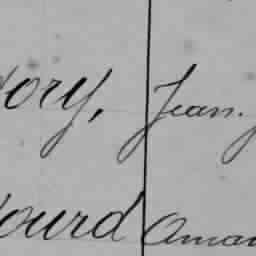 ory, Jean.
ourd Aman